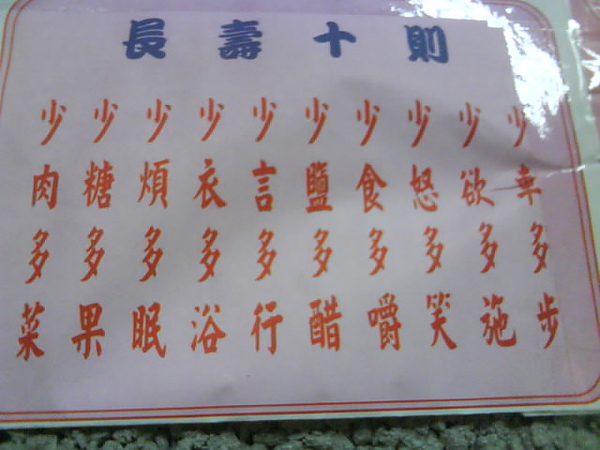 長壽十則
少肉多菜
少糖多果
少煩多眠
少衣多浴
少言多行
少鹽多醋
少食多嚼
少怒多笑
少欲多施
少車多步